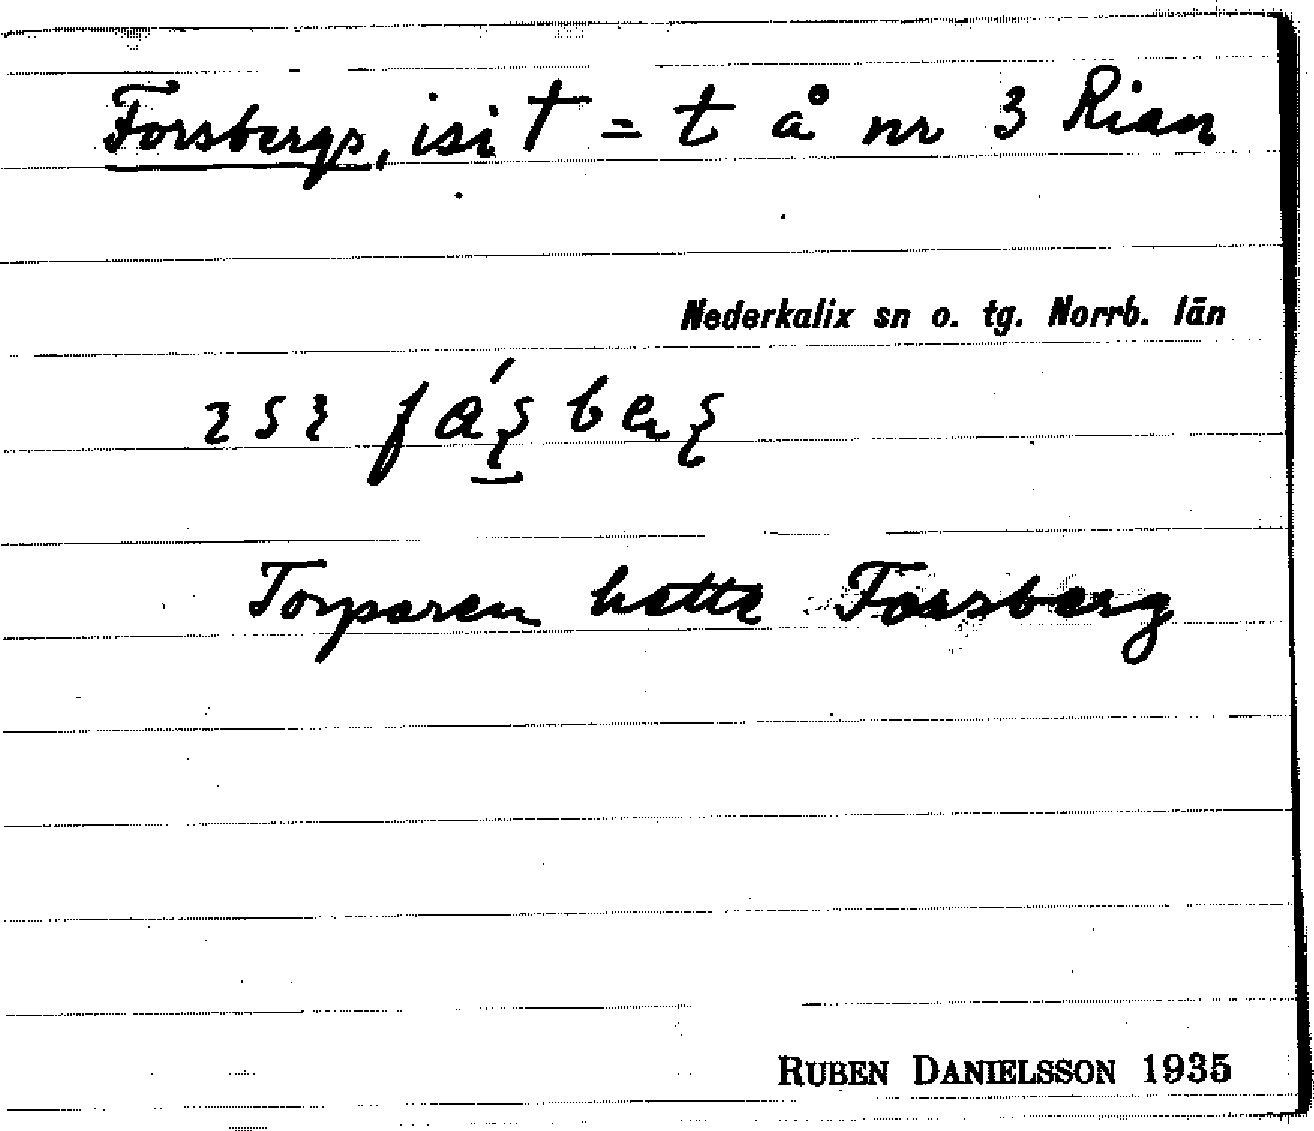 Forsbergs, isi T = t å nr 3 Rian
Nederkalix sn o. tg. Norrb. län
Torparen hette Forsberg
RUBEN DANIELSSON 1935